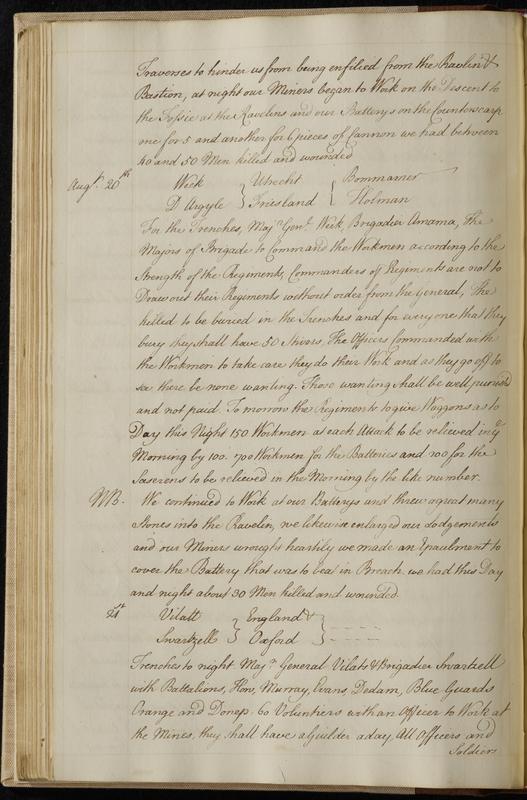 Traverses to hinder us from being enfilied from the Ravlin &
Bastion, at night our Miners began to Work on the Descent to
the Fossie at the Ravelins and our Batterys on the Counterscarp
one for 5 and another for 6 pieces of Cannon we had between
40 and 50 Men killed and wounded
Augt. 20th Week } Utrecht { Bommamer
D'Argyle } Friesland { Holman
For the Trenches, Majr Genl. Week, Brigadier Amama, The
Majors of Brigade to Command the Workmen according to the
Strength of the Regiments, Commanders of Regiments are not to
Draw out their Regiments without order from the General, The
killed to be buried in the Trenches and for every one that they
bury they shall have 50 Stivers, The Officers Commanded with
the Workmen to take care they do their Work and as they go off to
see there be none wanting. Those wanting shall be well punisd
and not paid. To morrow the Regiments to give Waggons as to
Day this Night 150 Workmen at each Attack to be relieved in ye
Morning by 100. 700 Workmen for the Batteries and 200 for the
Saserens to be relieved in the Morning by the like number.
NB. We continued to Work at our Batterys and threw a great many
Stones into the Ravelin, we likewise enlarged our Lodgements
and our Miners wrought heartily we made an Epaulment to
cover the Battery that was to beat in Breach we had this Day
and night about 30 Men killed and wounded
21st Vilatt } England & }
Swartzell } Oxford }
Trenches to night Majr. General Vilats & Brigadier Swartzell
with Battalions, Hon, Murray, Evans, Dedam, Blue Guards
Orange and Donep. 60 Voluntiers with an Officer to Work at
the Mines, they shall have a Guilder a day, All Officers and
Soldiers